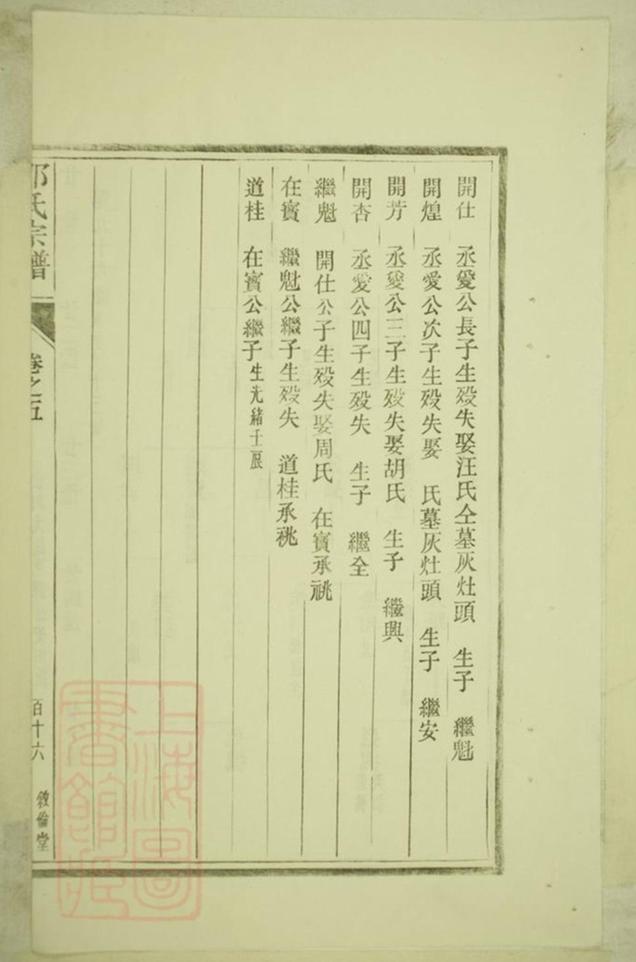 開仕 丞愛公長子生殁失娶汪氏仝墓灰灶頭 生子 繼魁
開煌 丞愛公次子生殁失娶 氏墓灰灶頭 生子 繼安
開芳 丞愛公三子生殁失娶胡氏 生子 繼興
開杏 丞愛公四子生殁失 生子 繼全
繼魁 開仕公子生殁失娶周氏 在賓承祧
在賓 繼魁公繼子生殁失 道桂承祧
道桂 在賓公繼子生光緒
氏宗譜 卷之五 百十六 敘倫堂
上海圖
書館